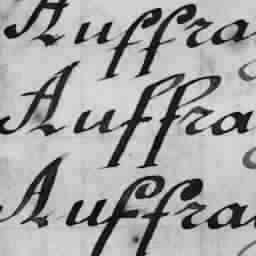 Auffray
Auffray
Auffray